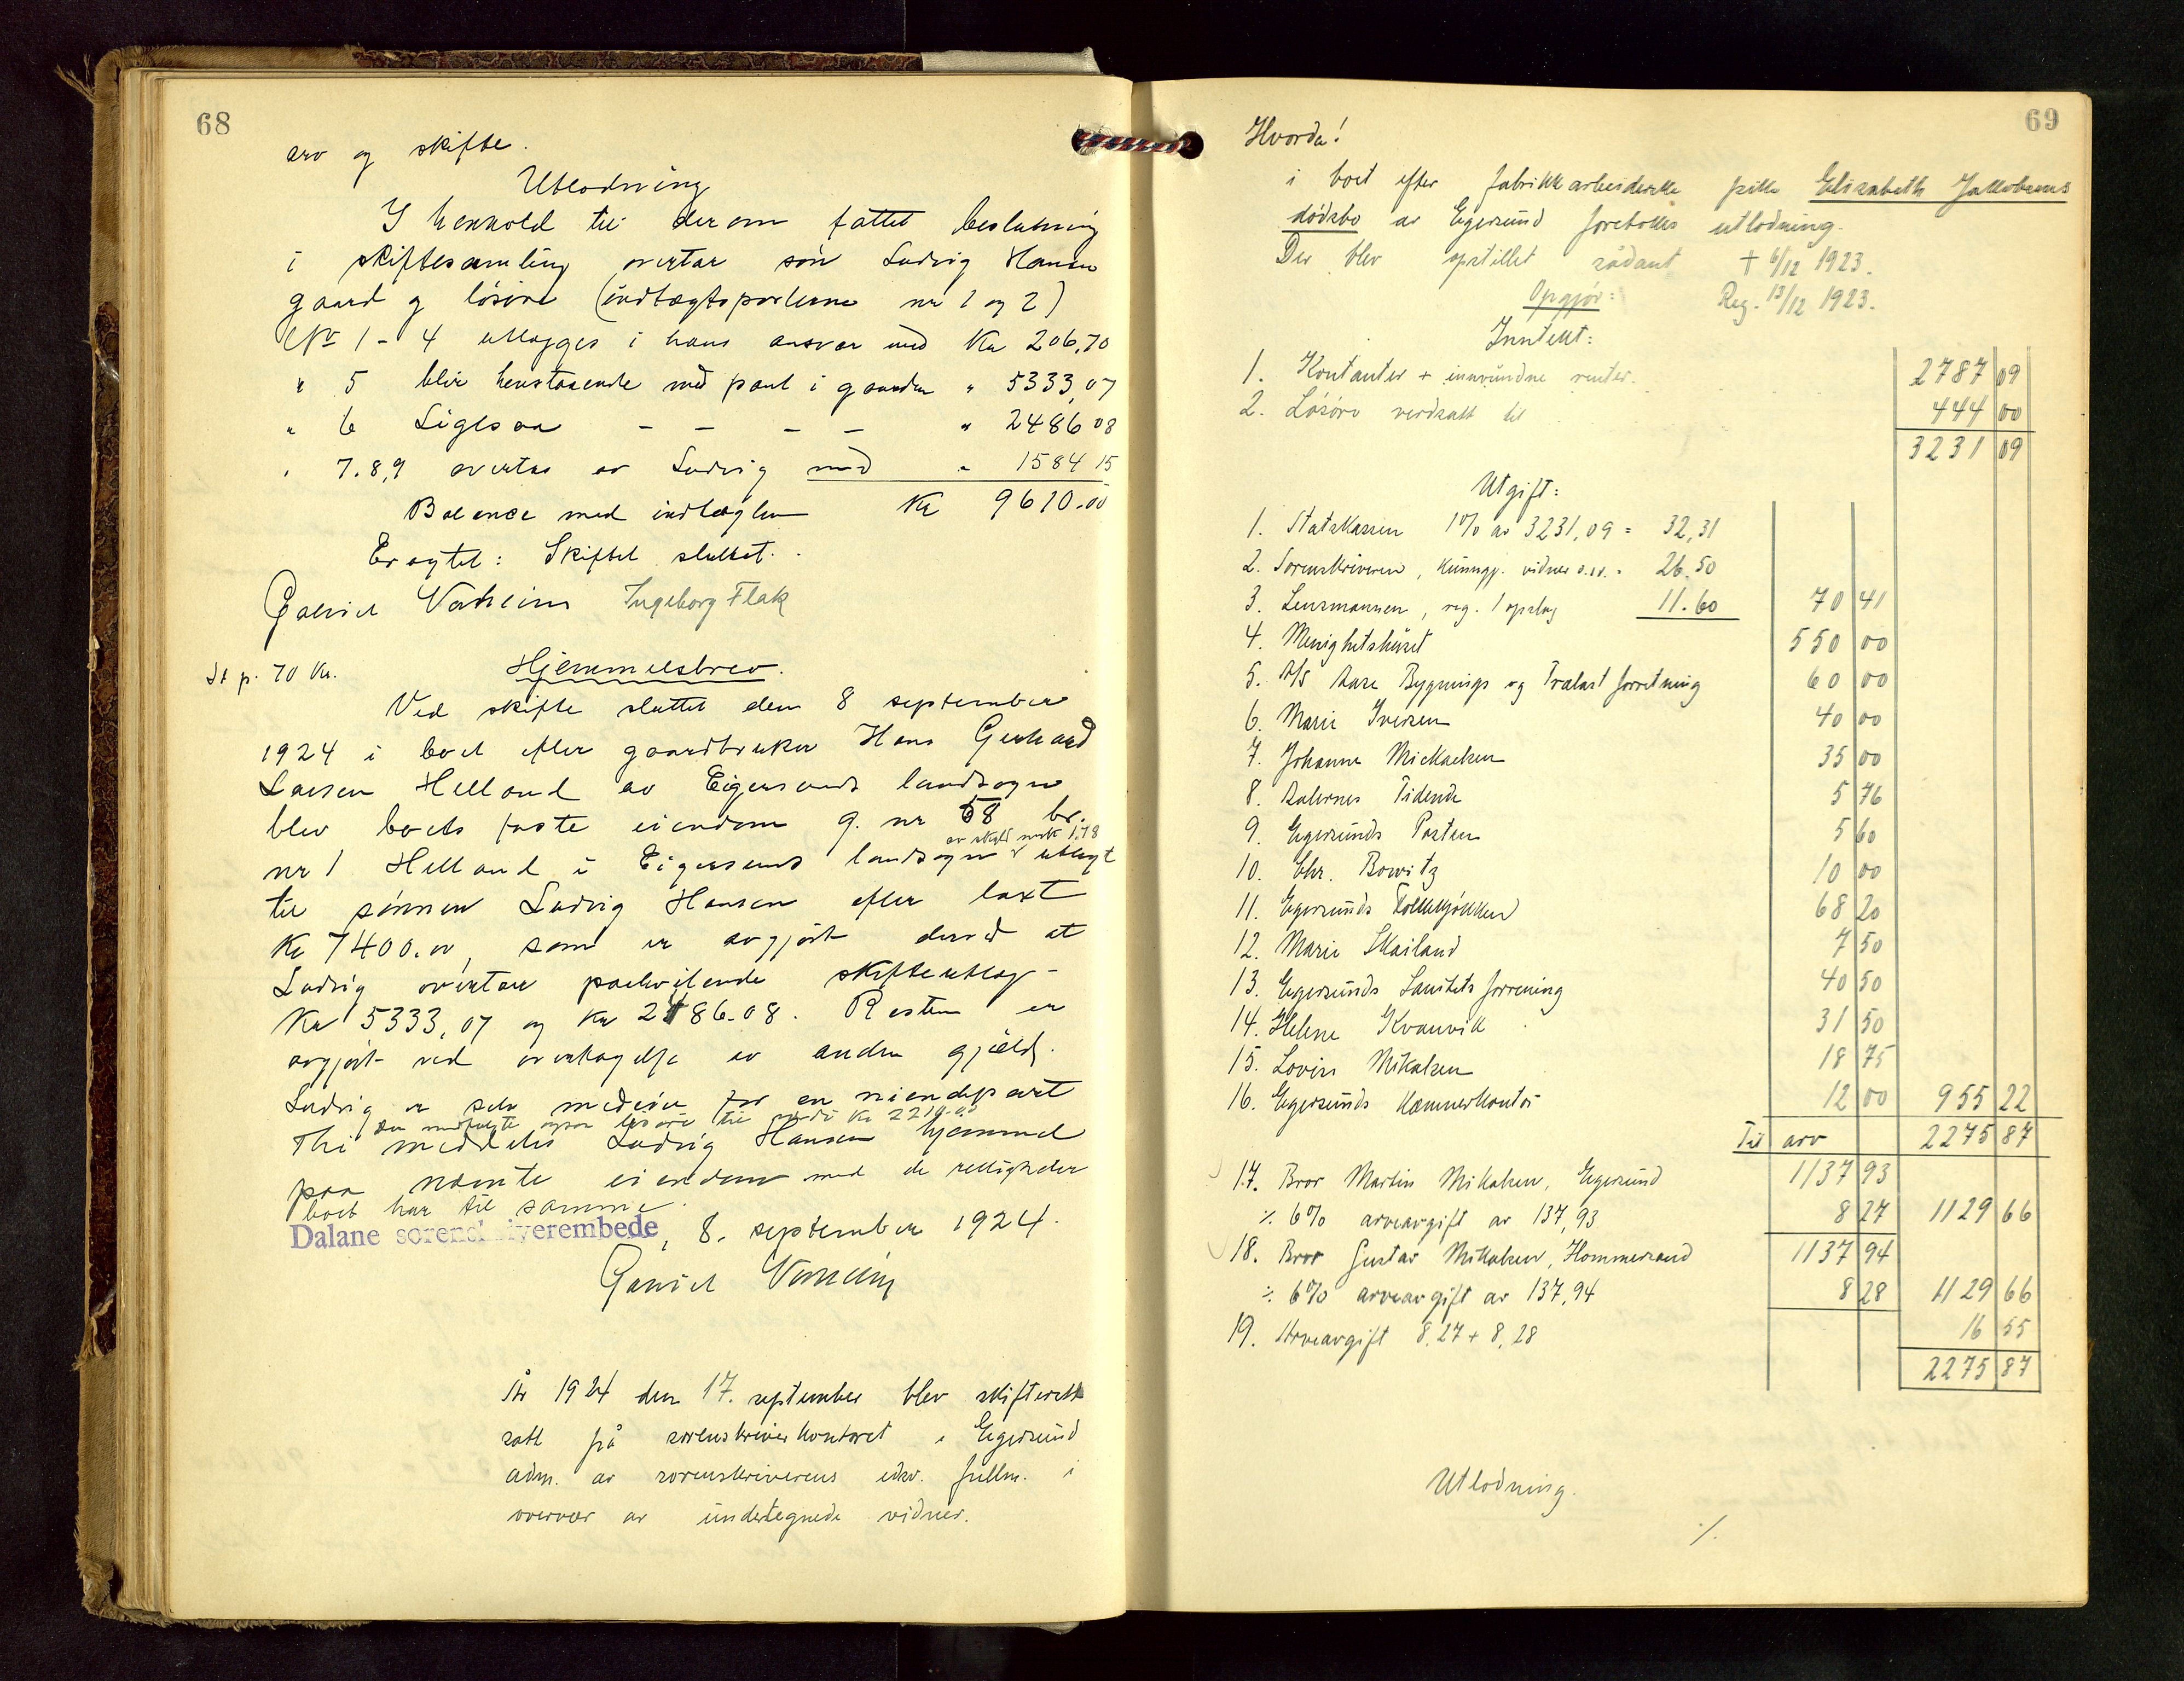 68
arv og skifte.
Utlodning
I henhold til derom fattet beslutning
i skiftesamling overtar søn Ludvig Hansen
gaard og løsøre (indtægtsposterne nr 1 og 2)
No 1 - 4 utlægges i hans ansvar med Kr 206,70
" 5 blir henstaaende med pant i gaarden " 5333,07
" 6 Ligesaa - - - - " 2486 08
" 7.8,9 overtas av Ludvig med " 1584 15
Balance med indtægten Kr 9610.00
Eragtet: Skiftet sluttet.
Gabriel Ingeborg Flak
St p. 70 Kr. Hjemmelsbrev.
Ved skifte sluttet den 8 september
1924 i boet efter gaardbruker Hans Gerhard
Larsen Helland av Eigersunds landsogn
blev boets faste eiendom g. nr 58 br.
av skyld mrk 1.78
nr 1 Helland i Eigersunds landsogn utlagt
til sønnen Ludvig Hansen efter taxt
Kr 7400.00, som er avgjort derved at
Ludvig overtar paahvilende skifteutlæg-
Kr 5333,07 og Kr 2486.08. Resten er
avgjort ved overtagelse av anden gjæld.
Ludvig er selv medeier for en niendepart
Der medfulgte ogsaa løsøre til værdi Kr 2210.00
Thi meddeles Ludvig Hansen hjemmel
paa nævnte eiendom med de rettigheder
boet har til samme.
Dalane sorenskriverembede, 8. september 1924.
Gabriel
År 1924 den 17. september blev skifterett
satt på sorenskriverkontoret i Egersund
adm. av sorenskriverens edsv. fullm. i
overvær av undertegnede vidner.
69
Hvorda!
i boet efter fabrikkarbeiderske frille Elisabeth Jakobsens
dødsbo av Egersund foretokes utlodning.
Der blev opstillet sådant + 6/12 1923.
Opgjør: Reg. 13/12 1923.
Inntekt:
1. Kontanter + innvundne renter. 2787 09
2. Løsøre verdsatt til 444 00
3231 09
Utgift:
1. Statskassen 1% av 3231,09 = 32,31
2. Sorenskriveren, kunngj. vidner o.sv. = 26.50
3. Lensmannen, reg. 1 opslag 11.60 70 41
4. Menighetshuset 550 00
5. A/S Aase Bygnings og Trælast forretning 60 00
6. Marie Iversen 40 00
7. Johanne Mickaelsen 35 00
8. Dalernes Tidende 5 76
9. Egersunds Posten 5 60
10. Chr. Bowitz 10 00
11. Egersunds Folkekjøkken 68 20
12. Marie Skailand 7 50
13. Egersunds Sanitets forening 40 50
14. Helene Kvanvik 31 50
15. Lovise Mikalsen 18 75
16. Egersunds Kæmnerkontor 12 00 955 22
Til arv 2275 87
17. Bror Martin Mikalsen, Egersund 1137 93
÷ 6% arveavgift av 137,93 8 27 1129 66
18. Bror Gustav Mikalsen, Hommersand 1137 94
÷ 6% arveavgift av 137,94 8 28 1129 66
19. Arveavgift 8.27 + 8.28 16 55
2275 87
Utlodning.
./.